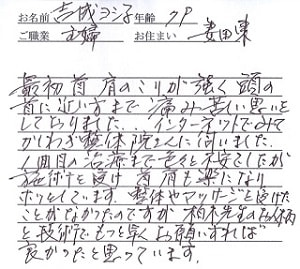 お名前 吉成ヨシ子 年齢
ご職業 主婦 お住まい 豊田東
最初首肩のこりが強く頭の
首に近い方まで痛み苦しい思いを
しておりました.. インターネットでみて
かしわぎ整体院さんに伺いました。
1回目の治療まで色々と不安でしたが
施術を受け首肩も楽になり
ホッとしています。整体やマッサージを受けた
ことがなかったのですが柏木先生のお人柄
と技術でもっと早くお願いすれば
良かったと思っています。